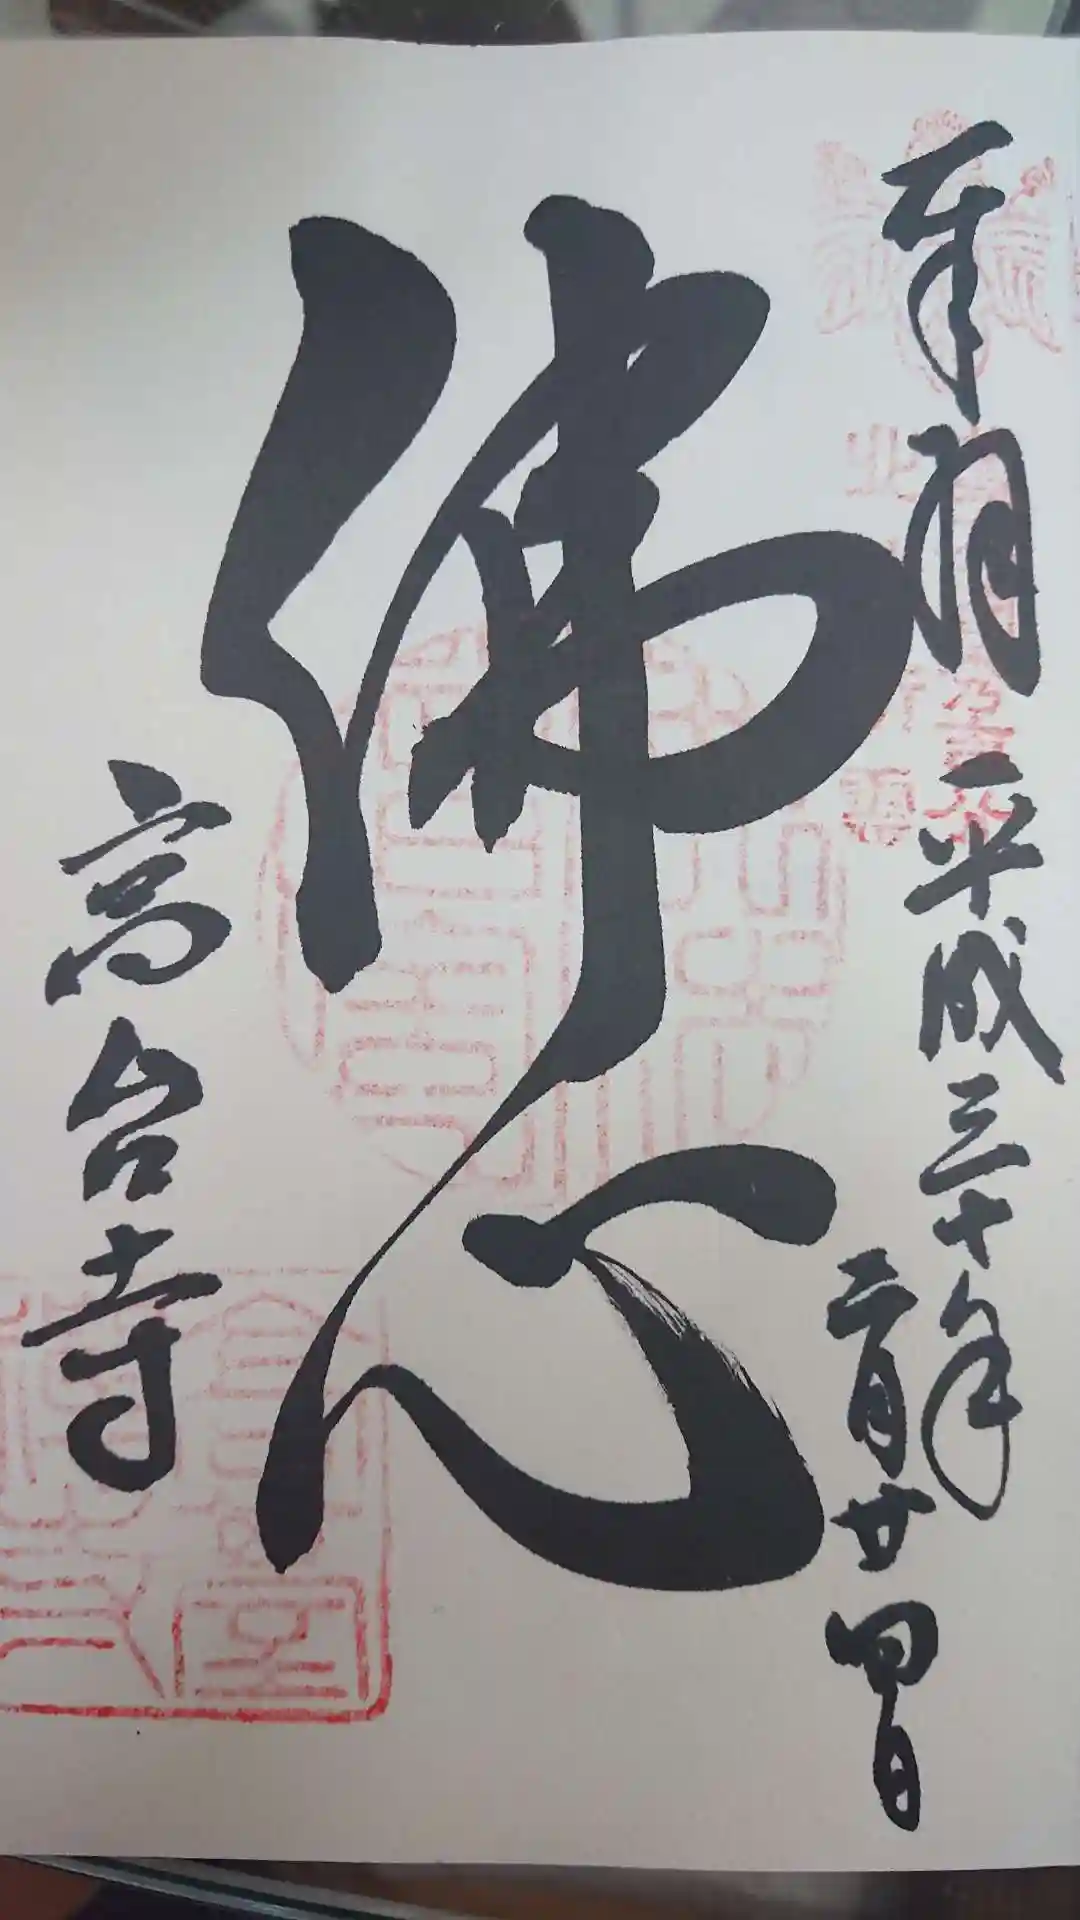 奉拝 平成三十年
二月廿四日
佛心
高台寺